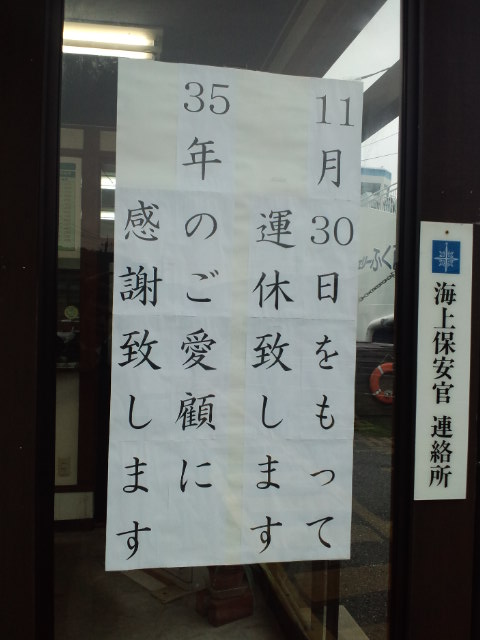 11月30日をもって
運休致します
35年のご愛顧に
感謝致します
海上保安官 連絡所
ふく